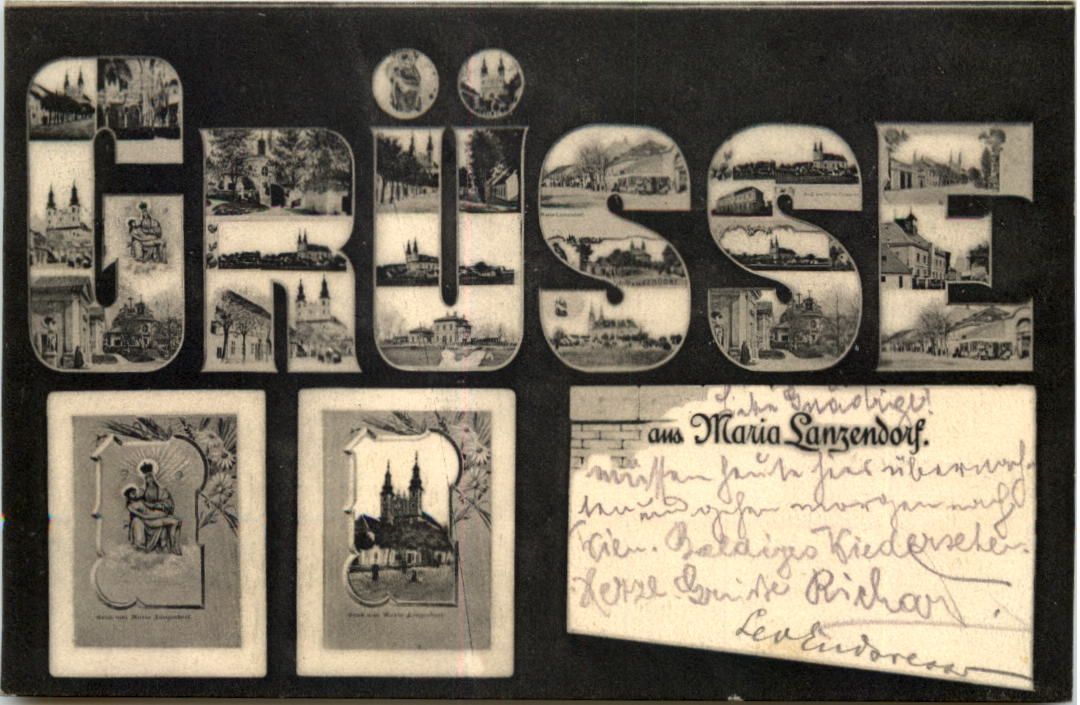 GRÜSSE
Maria-Lanzendorf.
LANZENDORF
Gruss aus Maria Lanzendorf.
Gruss aus Maria Lanzendorf.
Liebe Gnädige!
aus Maria Lanzendorf.
müssen heute hier übernach-
ten und gehen morgen nach
Wien. Baldiges Wiedersehen.
Herzl Grüße Richard
Leo